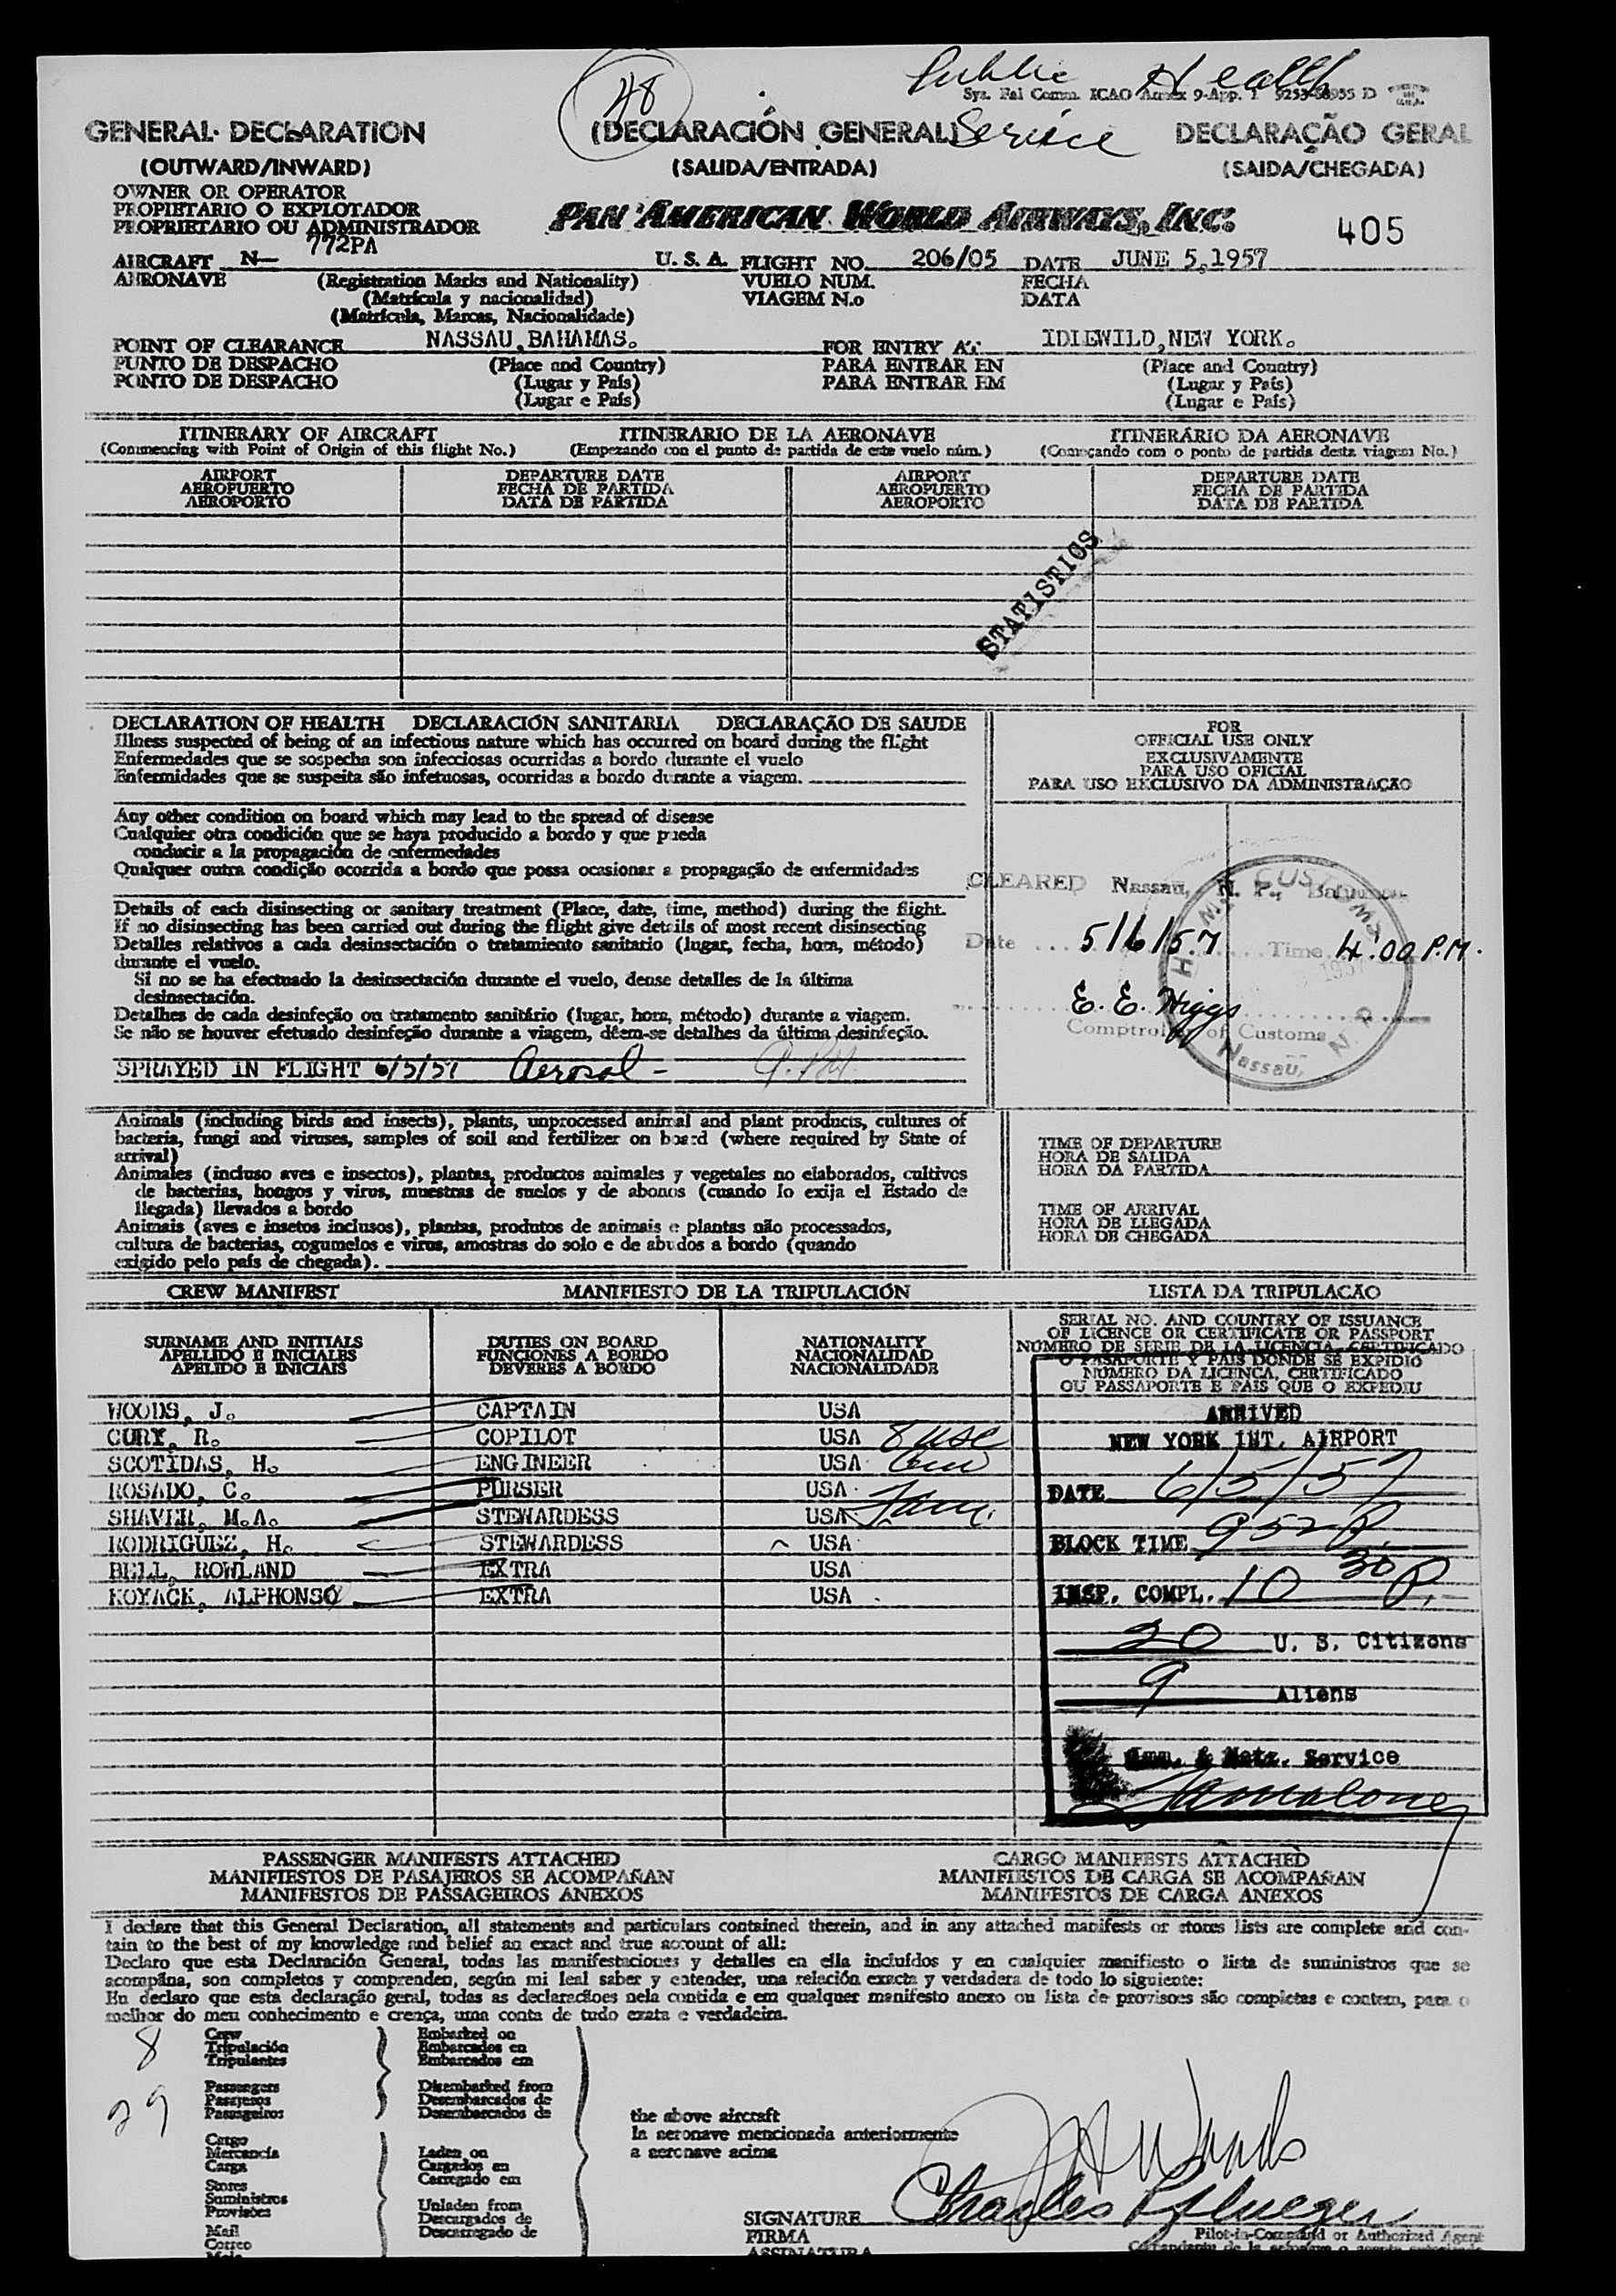 Public Health
Syz. Fal Comm. ICAO Annex 9-App. 1
48
GENERAL DECLARATION (DECLARACIÓN GENERAL) Service DECLARAÇÃO GERAL
(OUTWARD/INWARD) (SALIDA/ENTRADA) (SAIDA/CHEGADA)
OWNER OR OPERATOR
PROPIETARIO O EXPLOTADOR
PROPRIETARIO OU ADMINISTRADOR
PAN AMERICAN WORLD AIRWAYS, INC. 405
AIRCRAFT N— 772PA U. S. A. FLIGHT NO. 206/05 DATE JUNE 5,1957
AERONAVE (Registration Marks and Nationality) VUELO NUM. FECHA
(Matrícula y nacionalidad) VIAGEM N.o DATA
(Matrícula, Marcas, Nacionalidade)
POINT OF CLEARANCE NASSAU,BAHAMAS. FOR ENTRY AT IDLEWILD,NEW YORK.
PUNTO DE DESPACHO (Place and Country) PARA ENTRAR EN (Place and Country)
PONTO DE DESPACHO (Lugar y País) PARA ENTRAR EM (Lugar y País)
(Lugar e País) (Lugar e País)
ITINERARY OF AIRCRAFT ITINERARIO DE LA AERONAVE ITINERÁRIO DA AERONAVE
(Commencing with Point of Origin of this flight No.) (Empezando con el punto de partida de este vuelo núm.) (Começando com o ponto de partida desta viagem No.)
AIRPORT DEPARTURE DATE AIRPORT DEPARTURE DATE
AEROPUERTO FECHA DE PARTIDA AEROPUERTO FECHA DE PARTIDA
AEROPORTO DATA DE PARTIDA AEROPORTO DATA DE PARTIDA
STATISTICS
DECLARATION OF HEALTH DECLARACIÓN SANITARIA DECLARAÇÃO DE SAUDE
Illness suspected of being of an infectious nature which has occurred on board during the flight
Enfermedades que se sospecha son infecciosas ocurridas a bordo durante el vuelo
Enfermidades que se suspeita são infetuosas, ocorridas a bordo durante a viagem.
Any other condition on board which may lead to the spread of disease
Cualquier otra condición que se haya producido a bordo y que pueda
conducir a la propagación de enfermedades
Qualquer outra condição ocorrida a bordo que possa ocasionar a propagação de enfermidades
Details of each disinsecting or sanitary treatment (Place, date, time, method) during the flight.
If no disinsecting has been carried out during the flight give details of most recent disinsecting
Detalles relativos a cada desinsectación o tratamiento sanitario (lugar, fecha, hora, método)
durante el vuelo.
Si no se ha efectuado la desinsectación durante el vuelo, dense detalles de la última
desinsectación.
Detalhes de cada desinfeção ou tratamento sanitário (lugar, hora, método) durante a viagem.
Se não se houver efetuado desinfeção durante a viagem, dêem-se detalhes da última desinfeção.
SPRAYED IN FLIGHT 6/5/57 Aerosol -
FOR
OFFICIAL USE ONLY
EXCLUSIVAMENTE
PARA USO OFICIAL
PARA USO EXCLUSIVO DA ADMINISTRAÇÃO
CLEARED Nassau, N. P., Bahamas
Date 5/6/57 Time 4:00 P.M.
E. E. Higgs
Comptroller of Customs
H.M. CUSTOMS
1957
Nassau, N. P.
Animals (including birds and insects), plants, unprocessed animal and plant products, cultures of
bacteria, fungi and viruses, samples of soil and fertilizer on board (where required by State of
arrival)
Animales (incluso aves e insectos), plantas, productos animales y vegetales no elaborados, cultivos
de bacterias, hongos y virus, muestras de suelos y de abonos (cuando lo exija el Estado de
llegada) llevados a bordo
Animais (aves e insetos inclusos), plantas, produtos de animais e plantas não processados,
cultura de bacterias, cogumelos e virus, amostras do solo e de abudos a bordo (quando
exigido pelo país de chegada).
TIME OF DEPARTURE
HORA DE SALIDA
HORA DA PARTIDA
TIME OF ARRIVAL
HORA DE LLEGADA
HORA DE CHEGADA
CREW MANIFEST MANIFIESTO DE LA TRIPULACIÓN LISTA DA TRIPULACÃO
SURNAME AND INITIALS DUTIES ON BOARD NATIONALITY
APELLIDO E INICIALES FUNCIONES A BORDO NACIONALIDAD
APELIDO E INICIAIS DEVERES A BORDO NACIONALIDADE
SERIAL NO. AND COUNTRY OF ISSUANCE
OF LICENCE OR CERTIFICATE OR PASSPORT
NÚMERO DE SERIE DE LA LICENCIA, CERTIFICADO
O PASAPORTE Y PAÍS DONDE SE EXPIDIÓ
NÚMERO DA LICENÇA, CERTIFICADO
OU PASSAPORTE E PAÍS QUE O EXPEDIU
WOODS, J. CAPTAIN USA
CURY, R. COPILOT USA 8 USC
SCOTIDAS, H. ENGINEER USA
ROSADO, C. PURSER USA
SHAVER, M.A. STEWARDESS USA
RODRIGUEZ, H. STEWARDESS USA
BELL, ROWLAND EXTRA USA
KOYACK, ALPHONSO EXTRA USA
ARRIVED
NEW YORK INT. AIRPORT
DATE 6/5/57
BLOCK TIME 952 P.
INSP. COMPL. 10 30 P.
20 U. S. Citizens
9 Aliens
Imm. & Natz. Service
PASSENGER MANIFESTS ATTACHED CARGO MANIFESTS ATTACHED
MANIFIESTOS DE PASAJEROS SE ACOMPAÑAN MANIFIESTOS DE CARGA SE ACOMPAÑAN
MANIFESTOS DE PASSAGEIROS ANEXOS MANIFESTOS DE CARGA ANEXOS
I declare that this General Declaration, all statements and particulars contained therein, and in any attached manifests or stores lists are complete and con-
tain to the best of my knowledge and belief an exact and true account of all:
Declaro que esta Declaración General, todas las manifestaciones y detalles en ella incluídos y en cualquier manifiesto o lista de suministros que se
acompãna, son completos y comprenden, según mi leal saber y entender, una relación exacta y verdadera de todo lo siguiente:
Eu declaro que esta declaração geral, todas as declaracãoes nela contida e em qualquer manifesto anexo ou lista de provisoes são completas e contem, para o
melhor do meu conhecimento e crença, uma conta de tudo exata e verdadeira.
8 Crew Embarked on
Tripulación Embarcados en
Tripulantes Embarcados em
29 Passengers Disembarked from
Pasajeros Desembarcados de
Passageiros Desembarcados de
the above aircraft
la aeronave mencionada anteriormente
a aeronave acima
Cargo
Mercancía Laden on
Carga Cargados en
Carregado em
Stores
Suministros
Provisões
Unladen from
Descargados de
Descarregado de
Mail
Correo
J H Woods
SIGNATURE Charles Pflueger
FIRMA Pilot-in-Command or Authorized Agent
ASSINATURA